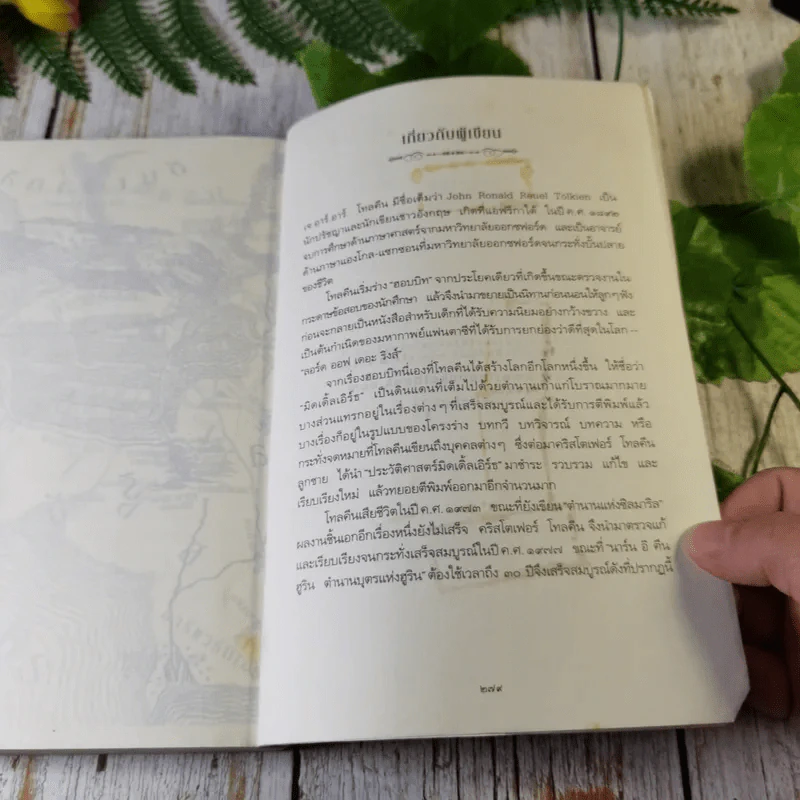 เกี่ยวกับผู้เขียน
เจ.อาร์.อาร์. โทลคีน มีชื่อเต็มว่า John Ronald Reuel Tolkien เป็น
นักปรัชญาและนักเขียนชาวอังกฤษ เกิดที่แอฟริกาใต้ ในปี ค.ศ. ๑๘๙๒
จบการศึกษาด้านภาษาศาสตร์จากมหาวิทยาลัยออกซฟอร์ด และเป็นอาจารย์
ด้านภาษาแองโกล-แซกซอนที่มหาวิทยาลัยออกซฟอร์ดจนกระทั่งบั้นปลาย
ของชีวิต
โทลคีนเริ่มร่าง “ฮอบบิท” จากประโยคเดียวที่เกิดขึ้นขณะตรวจงานใน
กระดาษข้อสอบของนักศึกษา แล้วจึงนำมาขยายเป็นนิทานก่อนนอนให้ลูกๆ ฟัง
ก่อนจะกลายเป็นหนังสือสำหรับเด็กที่ได้รับความนิยมอย่างกว้างขวาง และ
เป็นต้นกำเนิดของมหากาพย์แฟนตาซีที่ได้รับการยกย่องว่าดีที่สุดในโลก –
“ลอร์ด ออฟ เดอะ ริงส์”
จากเรื่องฮอบบิทนี่เองที่โทลคีนได้สร้างโลกอีกโลกหนึ่งขึ้น ให้ชื่อว่า
“มิดเดิ้ลเอิร์ธ” เป็นดินแดนที่เต็มไปด้วยตำนานเก่าแก่โบราณมากมาย
บางส่วนแทรกอยู่ในเรื่องต่างๆ ที่เสร็จสมบูรณ์และได้รับการตีพิมพ์แล้ว
บางเรื่องก็อยู่ในรูปแบบของโครงร่าง บทกวี บทวิจารณ์ บทความ หรือ
กระทั่งจดหมายที่โทลคีนเขียนถึงบุคคลต่างๆ ซึ่งต่อมาคริสโตเฟอร์ โทลคีน
ลูกชาย ได้นำ “ประวัติศาสตร์มิดเดิ้ลเอิร์ธ” มาชำระ รวบรวม แก้ไข และ
เรียบเรียงใหม่ แล้วทยอยตีพิมพ์ออกมาอีกจำนวนมาก
โทลคีนเสียชีวิตในปี ค.ศ. ๑๙๗๓ ขณะที่ยังเขียน “ตำนานแห่งซิลมาริล”
ผลงานชิ้นเอกอีกเรื่องหนึ่งยังไม่เสร็จ คริสโตเฟอร์ โทลคีน จึงนำมาตรวจแก้
และเรียบเรียงจนกระทั่งเสร็จสมบูรณ์ในปี ค.ศ. ๑๙๗๗ ขณะที่ “นาร์น อิ คีน
ฮูริน ตำนานบุตรแห่งฮูริน” ต้องใช้เวลาถึง ๓๐ ปีจึงเสร็จสมบูรณ์ดังที่ปรากฏนี้
๒๗๙